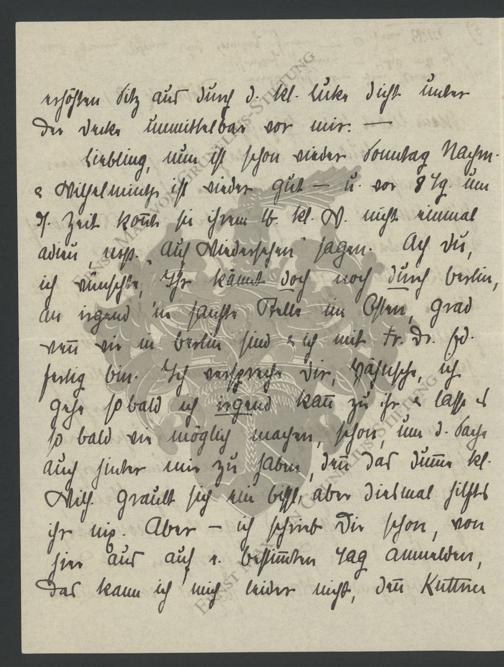 erhöhten Sitz aus durch d. kl. Luke dicht unter
der Decke unmittelbar vor mir. —
Liebling, nun ist schon wieder Sonntag Nachm.
& Wilhelmintje ist wieder gut — u. vor 8 Tg. um
d. Zeit konnt sie ihrem lb. kl. W. nicht einmal
adieu, resp. „auf Wiedersehen" sagen. Ach Du,
ich wünschte, Ihr kämt doch noch durch Berlin,
an irgend 'ne sanfte Stelle im Osten, grad
wenn wir in Berlin sind & ich mit Fr. Dr.
fertig bin. Ich verspreche Dir, ich
gehe so bald ich irgend kann zu ihr & lasse es
so bald wie möglich machen, schon um d. Sache
auch hinter mir zu haben, denn das dumme kl.
Wilh. grault sich ein bissl, aber diesmal hilfts
ihr nix. Aber — ich schrieb Dir schon, von
hier aus auf e. bestimmten Tag anmelden,
das kann ich mich leider nicht, denn Kuttner
ERNST MAX VON GRUNELIUS-STIFTUNG
ERNST MAX VON GRUNELIUS-STIFTUNG